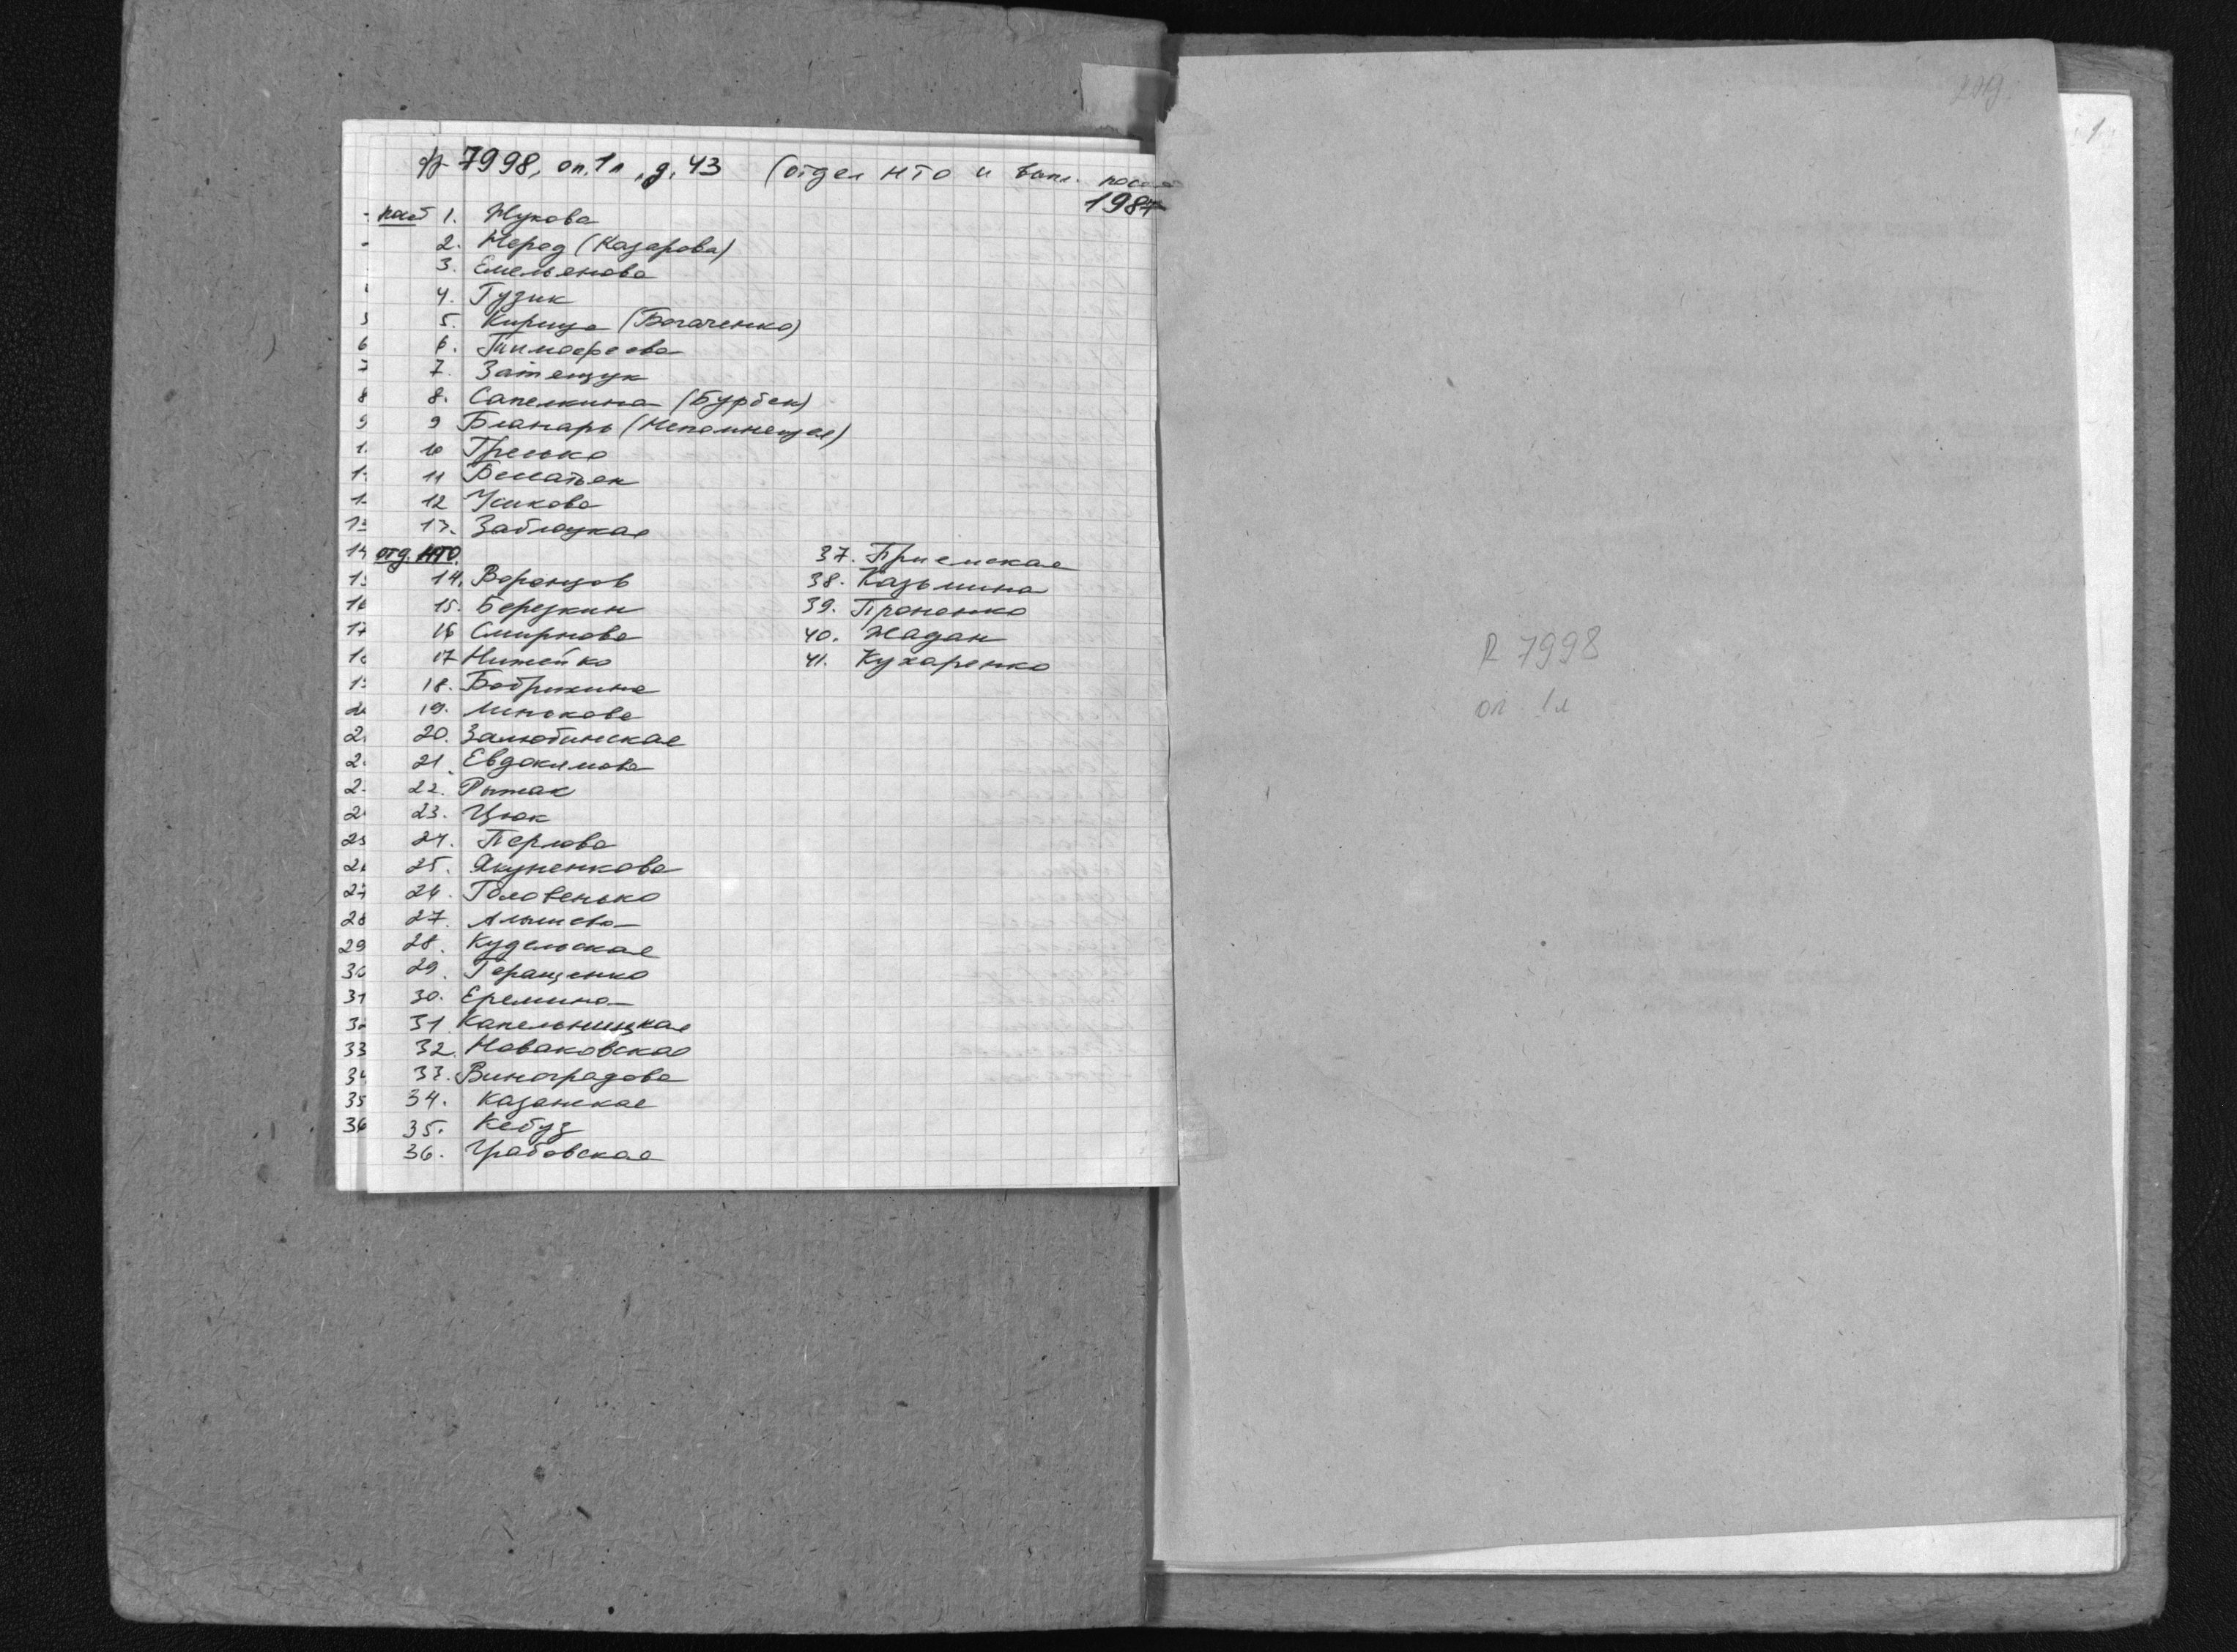 ф 7998, оп.1л, д. 43 (отдел НТО и
1987
1. Жукова
2. Мерод (Казарова)
3. Емельянова
4. Гузик
5. Кирица (Богаченко)
6. Тимофеева
7. Затящук
8. Сапелкина (Бурбек)
9 Бланарь (Непомнящая)
10 Гребко
11
12 Усикова
13. Заблоцкая
отд. НТО.
14. Воронцов
15. Березкин
16 Смирнова
17 Нитейко
18. Бобрикина
19. Минькова
20. Залюбинская
21. Евдокимова
22. Рытак
23. Цюк
24. Перлова
25. Якуненкова
26. Головенько
27.
28. Кудельская
29. Геращенко
30. Еремина
31. Капельницкая
32. Новаковская
33. Виноградова
34. Казанская
35. Кебуз
36. Грабовская
37. Приемская
38. Казьмина
39. Проненко
40. Жадан
41. Кухаренко
R 7998
оп 1л
1